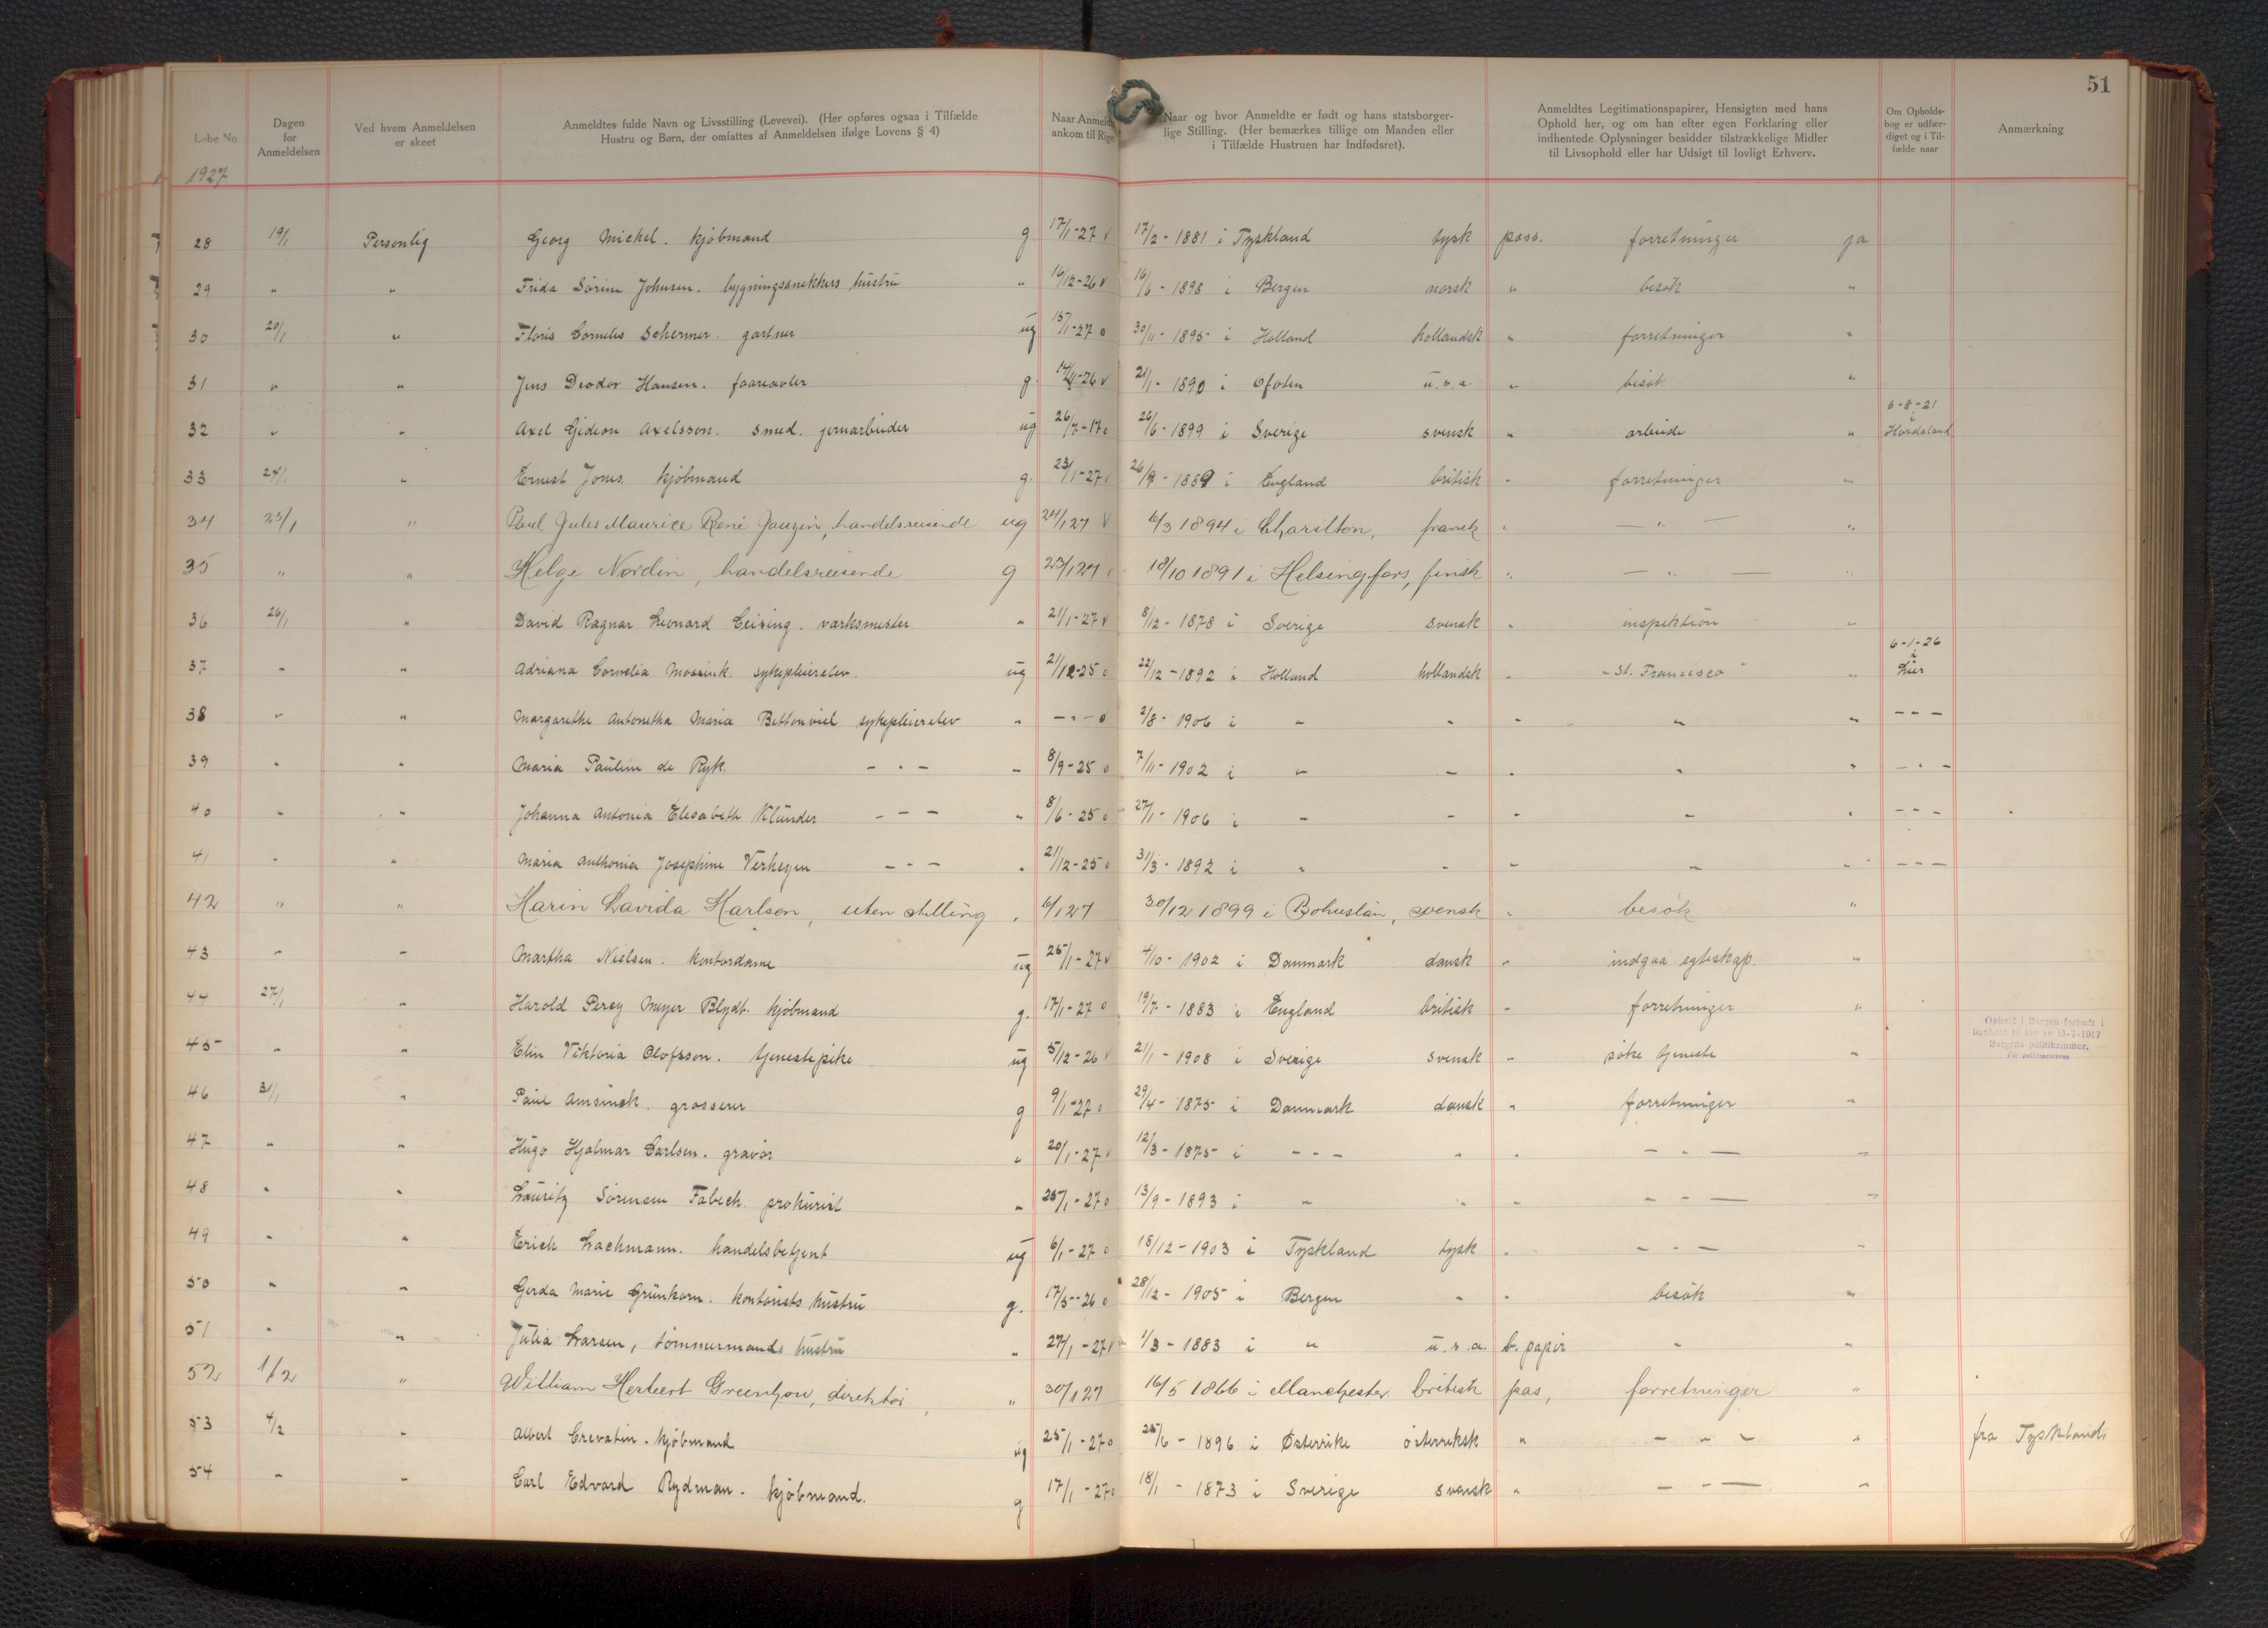 51
Løbe No.
Dagen for Anmeldelsen
Ved hvem Anmeldelsen er skeet
Anmeldtes fulde Navn og Livsstilling (Levevei). (Her opføres ogsaa i Tilfælde
Hustru og Børn, der omfattes af Anmeldelsen ifølge Lovens § 4)
Naar Anmeldte
ankom til Riget
Naar og hvor Anmeldte er født og hans statsborger-
lige Stilling. (Her bemærkes tillige om Manden eller
i Tilfælde Hustruen har Indfødsret).
Anmeldtes Legitimationspapirer, Hensigten med hans
Ophold her, og om han efter egen Forklaring eller
indhentede Oplysninger besidder tilstrækkelige Midler
til Livsophold eller har Udsigt til lovligt Erhverv.
Om Opholds-
bog er udfær-
diget og i Til-
fælde naar
Anmærkning
1927
28 19/1 Personlig Georg Michel. kjøbmand g 17/1-27 v 17/2-1881 i Tyskland tysk pass. forretninger ja
29 " " Frida Sørine Johnsen. bygningssnekkers hustru " 16/12-26 v 16/6-1898 i Bergen norsk " besøk "
30 20/1 " Floris Cornelis Schermer. gartner ug 15/1-27 o 30/11-1895 i Holland hollandsk " forretninger "
31 " " Jens Deodor Hansen. faareavler g. 26 v 21/1-1890 i Ofoten u.s.a. " besøk "
6-8-21
i
32 " " Axel Gideon Axelsson. smed. jernarbeider ug 26/7-17 o 26/6-1899 i Sverige svensk " arbeide " Hordaland
33 24/1 " Ernest Jones. kjøbmand g. 23/1-27 v 26/9-1889 i England britisk " forretninger "
34 25/1 " Paul Jules Maurice René Jauzin, handelsreisende ug 24/1 27 v 6/3 1894 i Charilton, fransk " — " — "
35 " " Helge Nordin, handelsreisende g 23/1 27 18/10 1891 i Helsingfors, finsk " — " — "
36 26/1 " David Ragnar Leonard Ceising. verksmester " 21/1-27 v 8/12-1878 i Sverige svensk " inspektion "
6-1-26
i
37 " " Adriana Cornelia Mossink. sykepleierelev. ug 21/12-25 o 22/12-1892 i Holland hollandsk " "St. Francisco" " Lier
38 " " Margarethe Antonetha Maria Bettonviel sykepleierelev " - " - o 2/8-1906 i " " " " " - - -
39 " " Maria Pauline de Ryk - " - " 8/9-25 o 7/11-1902 i " " " " " - " -
40 " " Johanna Antonia Elisabeth Klünder - - - " 8/6-25 o 27/1-1906 i " " " " " - - -
41 " " Maria Anthonia Josephine Verhegen - - - " 21/12-25 o 31/3-1892 i " " " " " - - -
42 " " Karin Davida Karlson, uten stilling " 6/1 27 30/12 1899 i Bohuslän, svensk " besök "
43 " " Martha Nielsen. kontordame ug 25/1-27 v 4/10-1902 i Danmark dansk " indgaa egteskap. "
44 27/1 " Harold Percy Meyer Blydt. kjøbmand g. 17/1-27 o 19/7-1883 i England britisk " forretninger "
Ophold i Bergen forbudt i
henhold til lov av 13-7-1917
Bergens politikammer.
45 " " Elin Viktoria Olofsson. tjenestepike ug 5/12-26 v 21/1-1908 i Sverige svensk " søke tjeneste "
46 31/1 " Paul Amsinck. grosserer g 9/1-27 o 29/4-1875 i Danmark dansk " forretninger "
47 " " Hugo Hjalmar Carlsen. gravør " 20/1-27 v 12/3-1875 i - - - " " - " — "
48 " " Lauritz Sørensen Fabech. prokurist " 25/1-27 o 13/9-1893 i " " " - " — "
49 " " Erich Lachmann. handelsbetjent ug 6/1-27 o 18/12-1903 i Tyskland tysk " - " — "
50 " " Gerda Marie Grünkorn. kontorists hustru g. 17/5-26 o 28/12-1905 i Bergen " " besøk "
51 " " Julia Larsen, tømmermands hustru " 27/1-27 v 1/3-1883 i " u.s.a. b. papir " "
52 1/2 " William Herbert Greenhow, direktør, " 30/1 27 16/5 1866 i Manchester britisk pas, forretninger "
53 4/2 " Albert Crevatin. kjøbmand ug 25/1-27 o 25/6-1896 i Østerrike østerriksk " - " - " fra Tyskland.
54 " " Carl Edvard Rydman. kjøbmand. g 17/1-27 o 18/1-1873 i Sverige svensk " - " — "